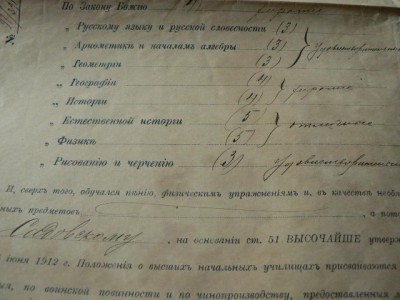 По Закону Божію хорошіе
„ Русскому языку и русской словесности (3)
„ Ариѳметикѣ и началамъ алгебры (3) удовлетворительные
„ Геометріи (3)
„ Географіи (4)
„ Исторіи (4) хорошіе
„ Естественной исторіи (5)
„ Физикѣ (5) отличные
„ Рисованію и черченію (3) удовлетворительные
И, сверхъ того, обучался пѣнію, физическимъ упражненіямъ и, въ качествѣ необяза
ныхъ предметовъ, а пото
, на основаніи ст. 51 ВЫСОЧАЙШЕ утвер
іюня 1912 г. Положенія о высшихъ начальныхъ училищахъ присваиваются
я, по воинской повинности и по чинопроизводству, предоставленныя